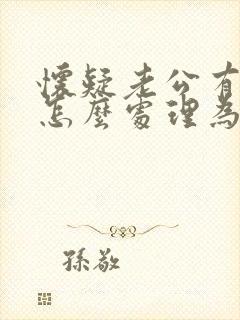 懷疑老公有
怎麼處理為
孫敬